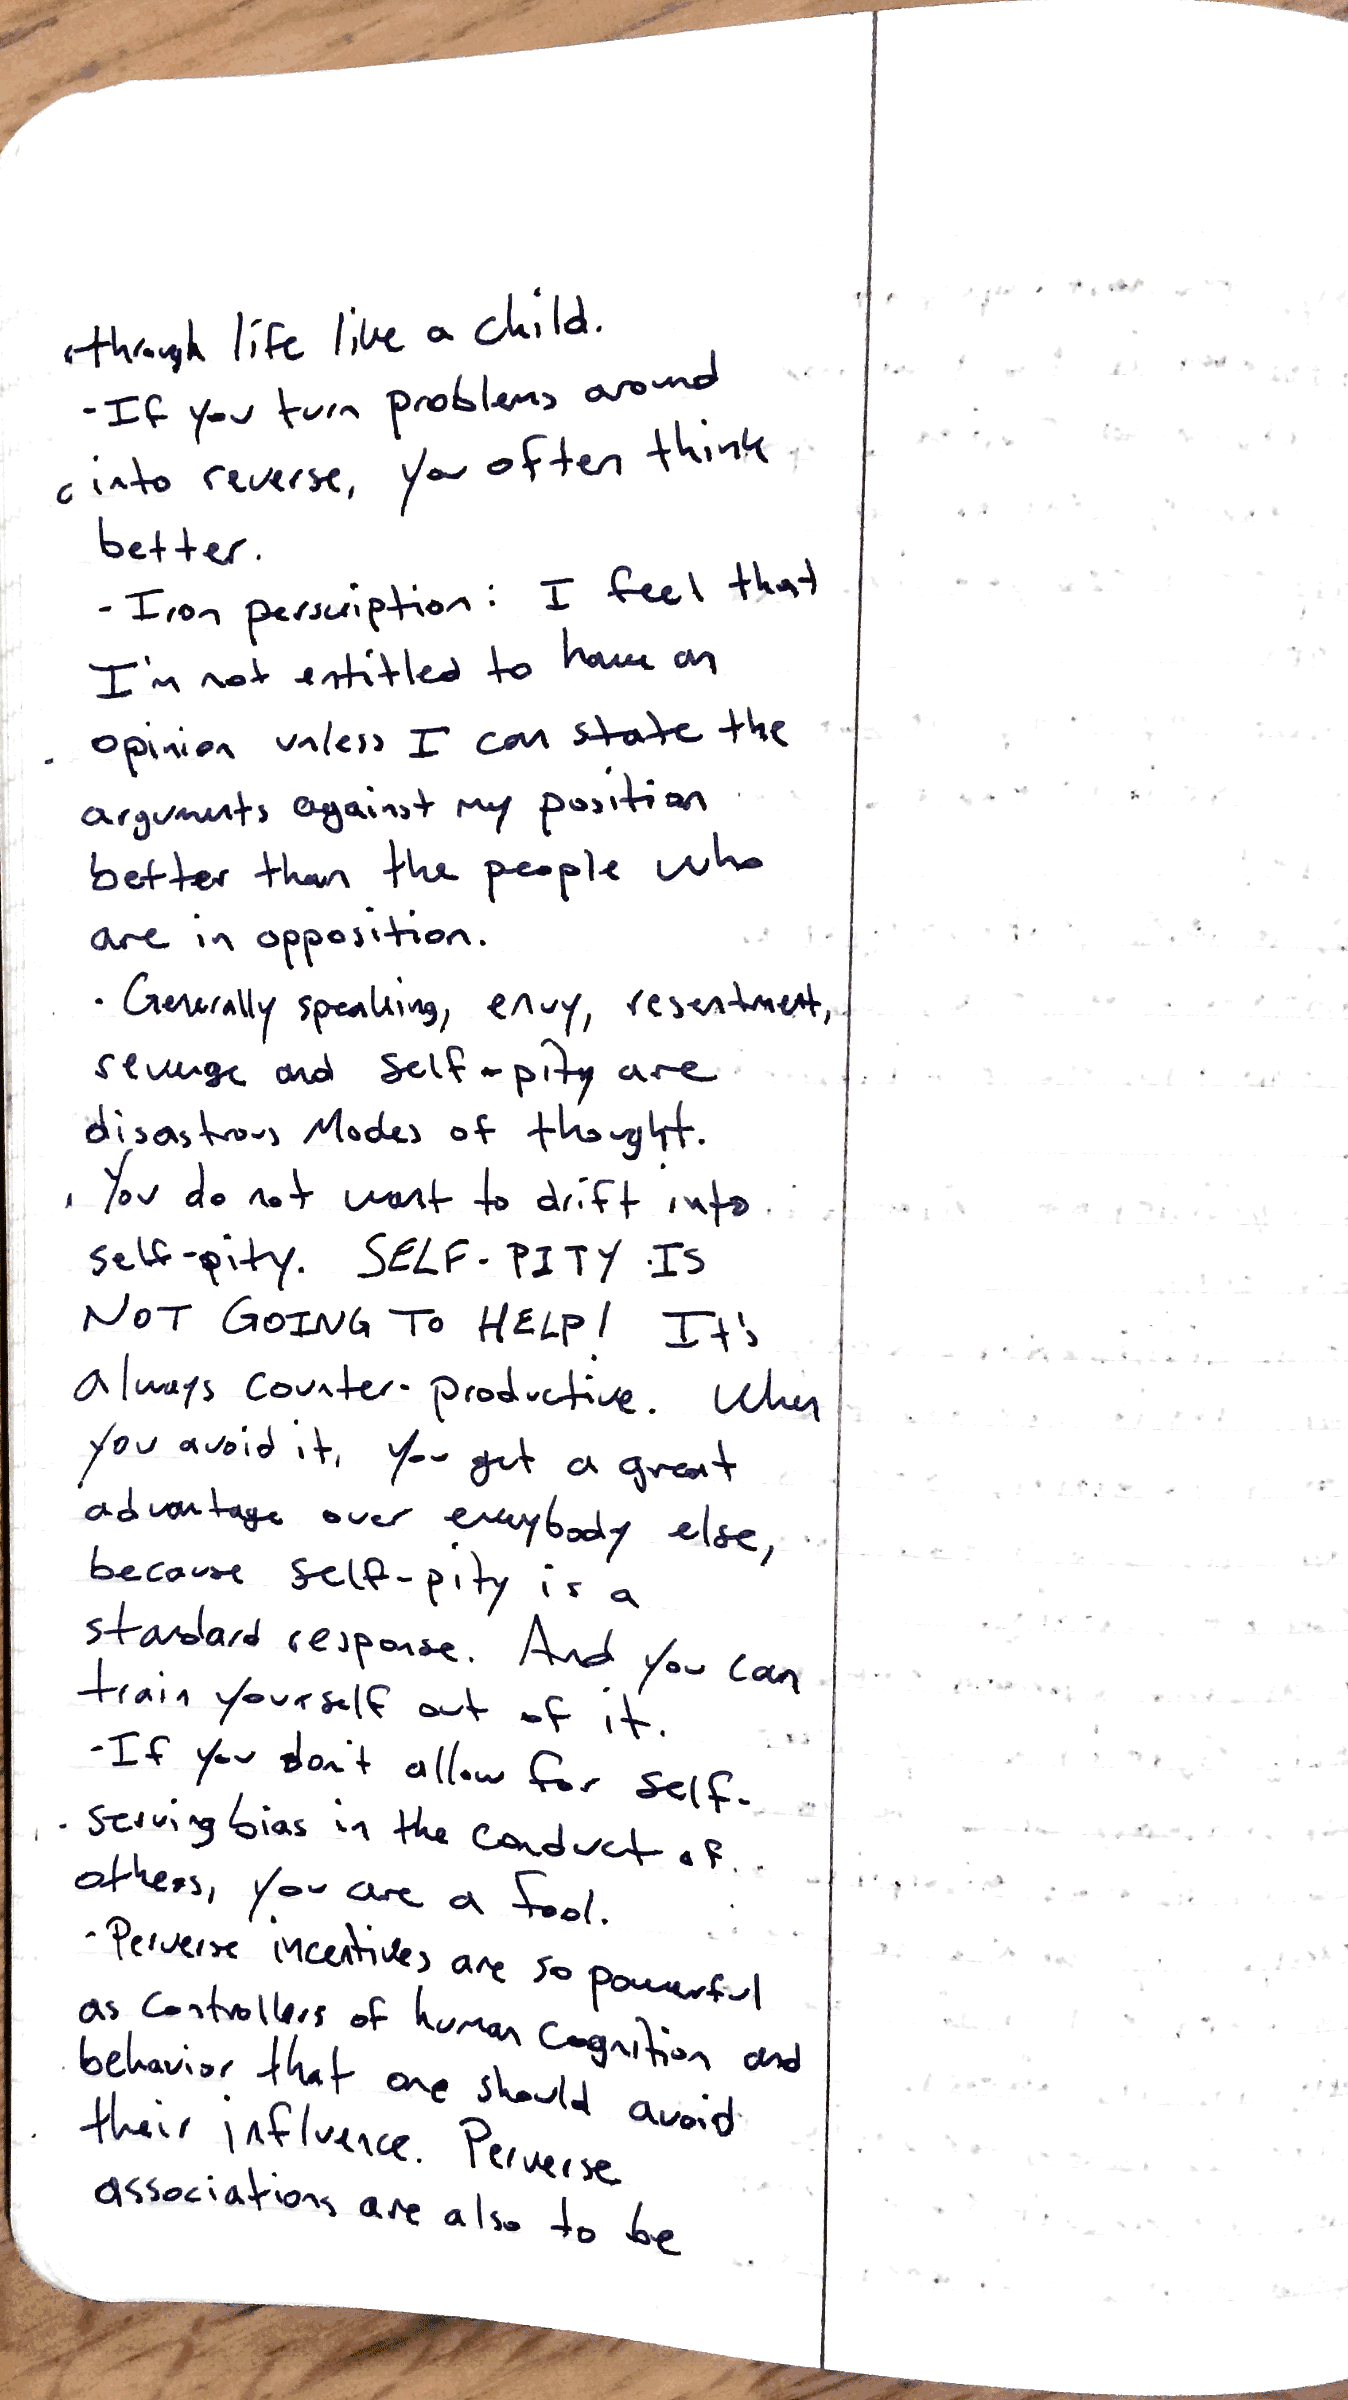 through life like a child.
- If you turn problems around
into reverse, you often think
better.
- Iron perscription: I feel that
I'm not entitled to have an
opinion unless I can state the
arguments against my position
better than the people who
are in opposition.
· Generally speaking, envy, resentment,
revenge and self-pity are
disastrous modes of thought.
You do not want to drift into
self-pity. SELF-PITY IS
NOT GOING TO HELP! It's
always counter-productive. When
you avoid it, you get a great
advantage over everybody else,
because self-pity is a
standard response. And you can
train yourself out of it.
- If you don't allow for self-
serving bias in the conduct of
others, you are a fool.
- Perverse incentives are so powerful
as controllers of human cognition and
behavior that one should avoid
their influence. Perverse
associations are also to be